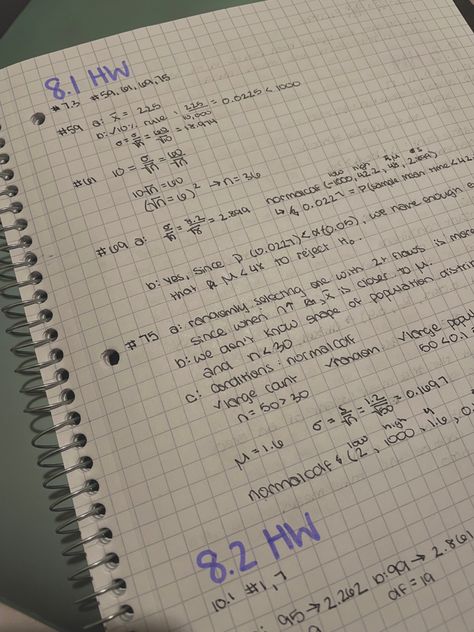 8.1 HW
#7.3 #59, 61, 69, 75
#59 a: x̄ = 225
b: ✓10% rule: 225/10,000 = 0.0225 < 1000
σ = σ/√n = 60/√10 = 18.974
#61 10 = σ/√n = 60/√n
10√n = 60
(√n = 6)² → n = 36
#69 a: σ/√n = 8.2/√8 = 2.899
low high
normalcdf(-1000, 42.2, 48, 2.899)
↳ 0.0227 = P(sample mean time < 42
b: yes, since p (0.0227) < α(0.05), we have enough
that μ < 48 to reject H₀.
#75 a: randomly selecting one with 2+ flaws is more
since when n↑ x̄ is closer to μ.
b: we don't know shape of population distri
and n < 30
c: conditions: normalcdf
✓large count ✓random ✓large popu
n = 50 > 30 50 < 0.1
μ = 1.6 σ = = 1.2/√50 = 0.1697
low high μ
normalcdf (2, 1000, 1.6, 0.
8.2 HW
10.1 #1, 7
: 95 → 2.262 b: 99 → 2.861
df = 19